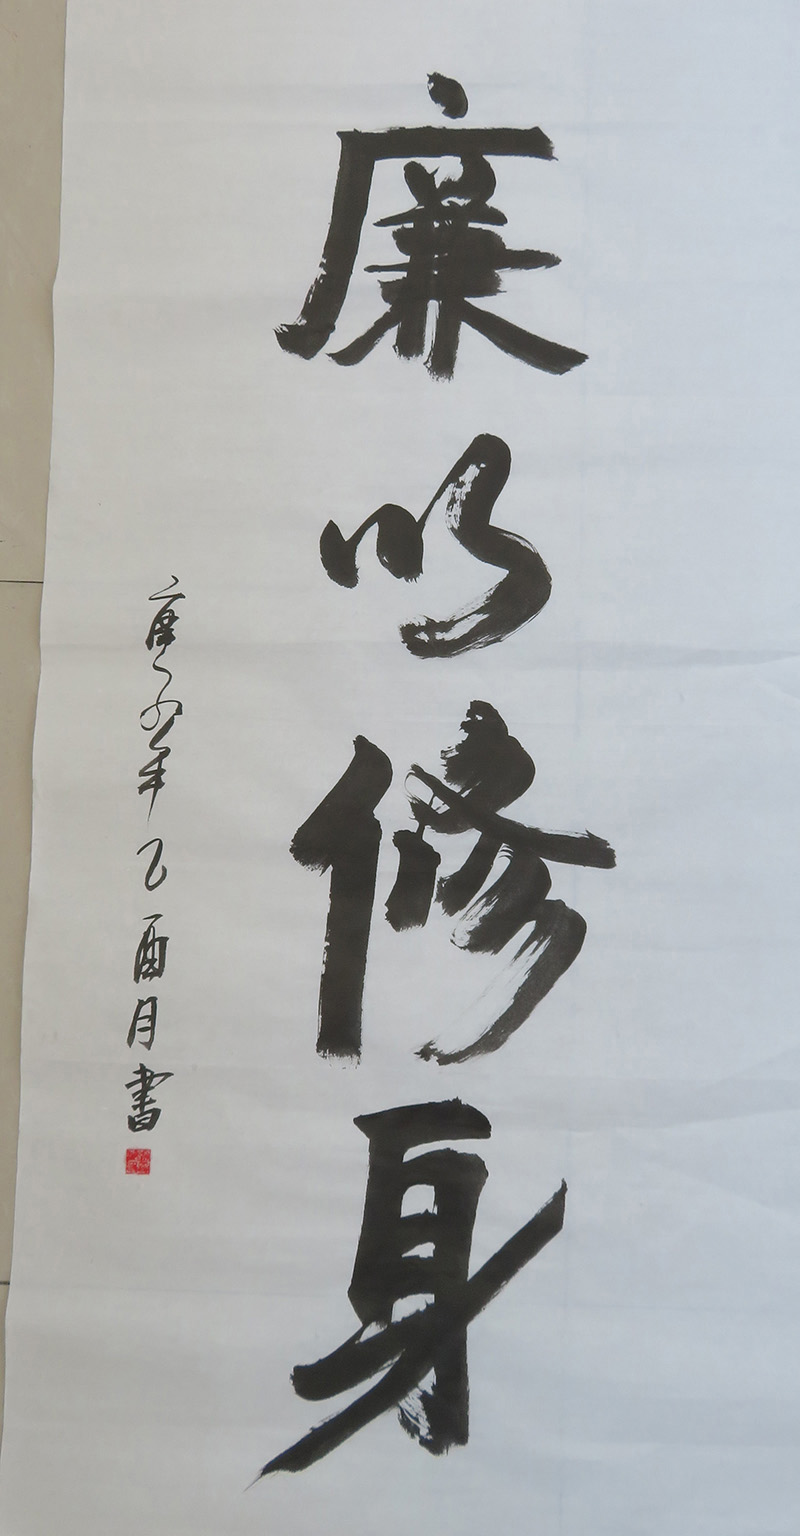 廉以修身
庚子年乙酉月書